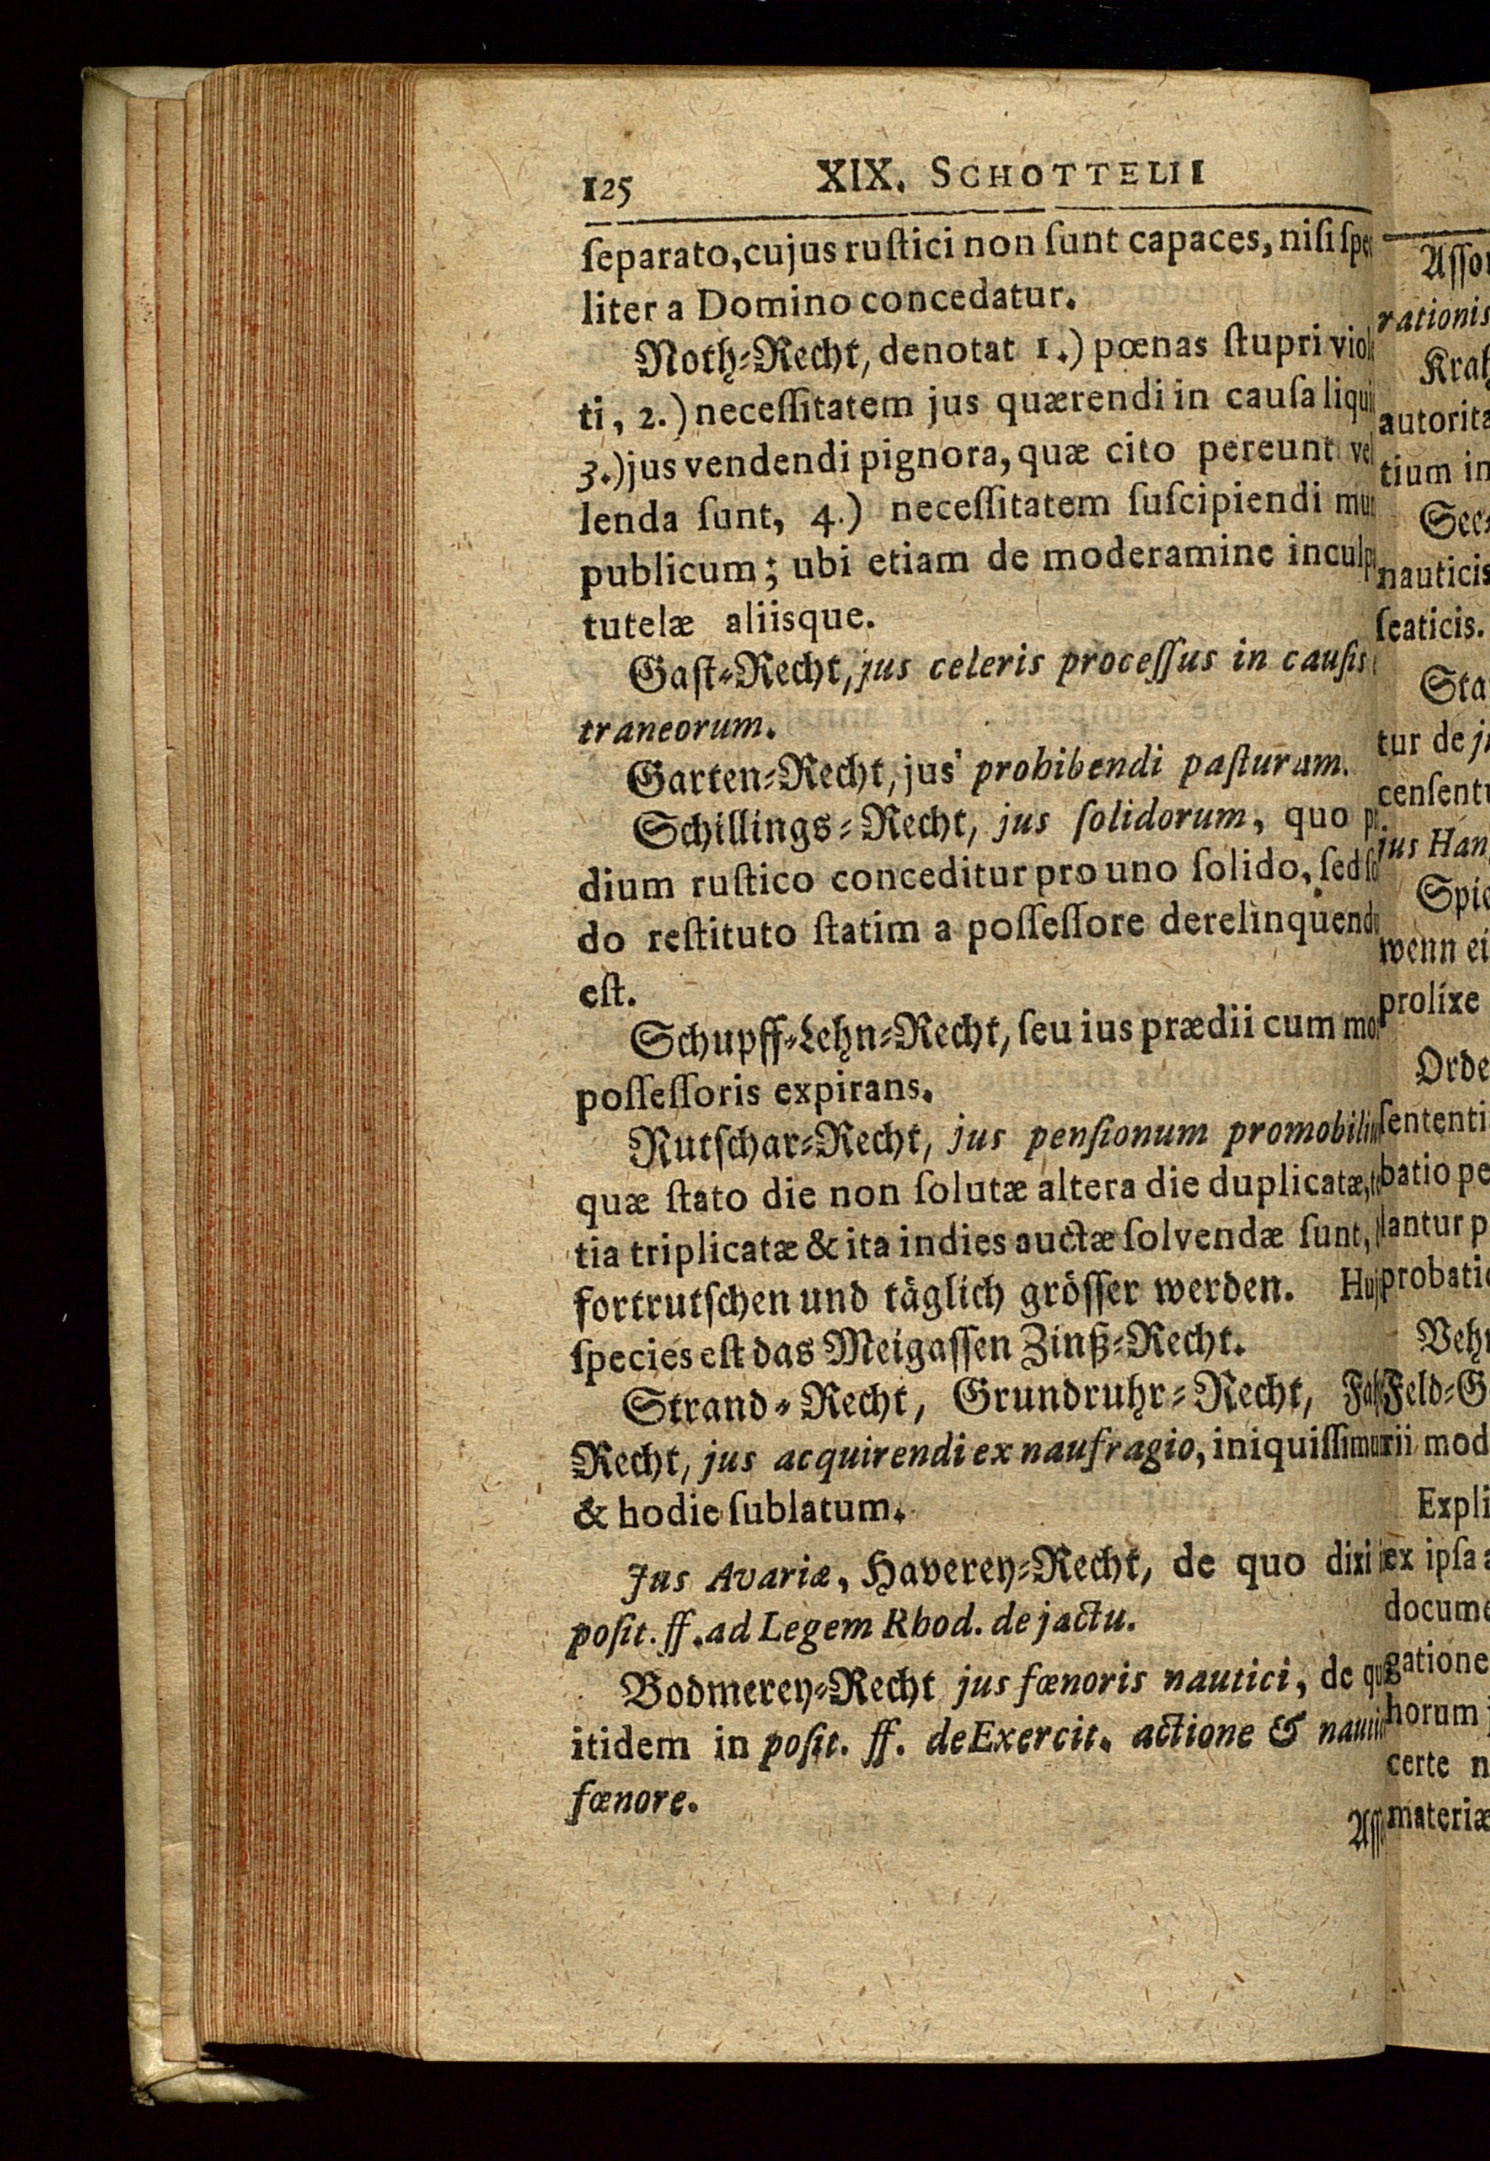 125 XIX. SCHOTTELII
ſeparato, cujus ruſtici non ſunt capaces, niſi
liter a Domino concedatur.
Noth-Recht, denotat 1.) pœnas ſtupri
ti, 2.) neceſſitatem jus quærendi in cauſa
3.) jus vendendi pignora, quæ cito pereunt
lenda ſunt, 4.) neceſſitatem ſuſcipiendi
publicum; ubi etiam de moderamine
tutelæ aliisque.
Gaſt-Recht, jus celeris proceſſus in cauſis
traneorum.
Garten-Recht, jus prohibendi paſturam.
Schillings-Recht, jus ſolidorum, quo
dium ruſtico conceditur pro uno ſolido, ſed
do reſtituto ſtatim a poſſeſſore
eſt.
Schupff-Lehn-Recht, ſeu ius prædii cum
poſſeſſoris expirans.
Rutſchar-Recht, jus penſionum
quæ ſtato die non ſolutæ altera die duplicatæ,
tia triplicatæ & ita indies auctæ ſolvendæ ſunt,
fortrutſchen und täglich gröſſer werden.
ſpecies eſt das Meigaſſen Zinß-Recht.
Strand-Recht, Grundruhr-Recht,
Recht, jus acquirendi ex naufragio,
& hodie ſublatum.
Jus Avariæ, Haverey-Recht, de quo dixi
poſit. ff. ad Legem Rhod. de jactu.
Bodmerey-Recht jus fœnoris nautici, de
itidem in poſit. ff. de Exercit. actione &
fœnore.
rationis
tium
nauticis
ſeaticis.
tur de
jus
wenn
prolixe
batio
lantur
Feld-
ex ipſa
certe
materiæ